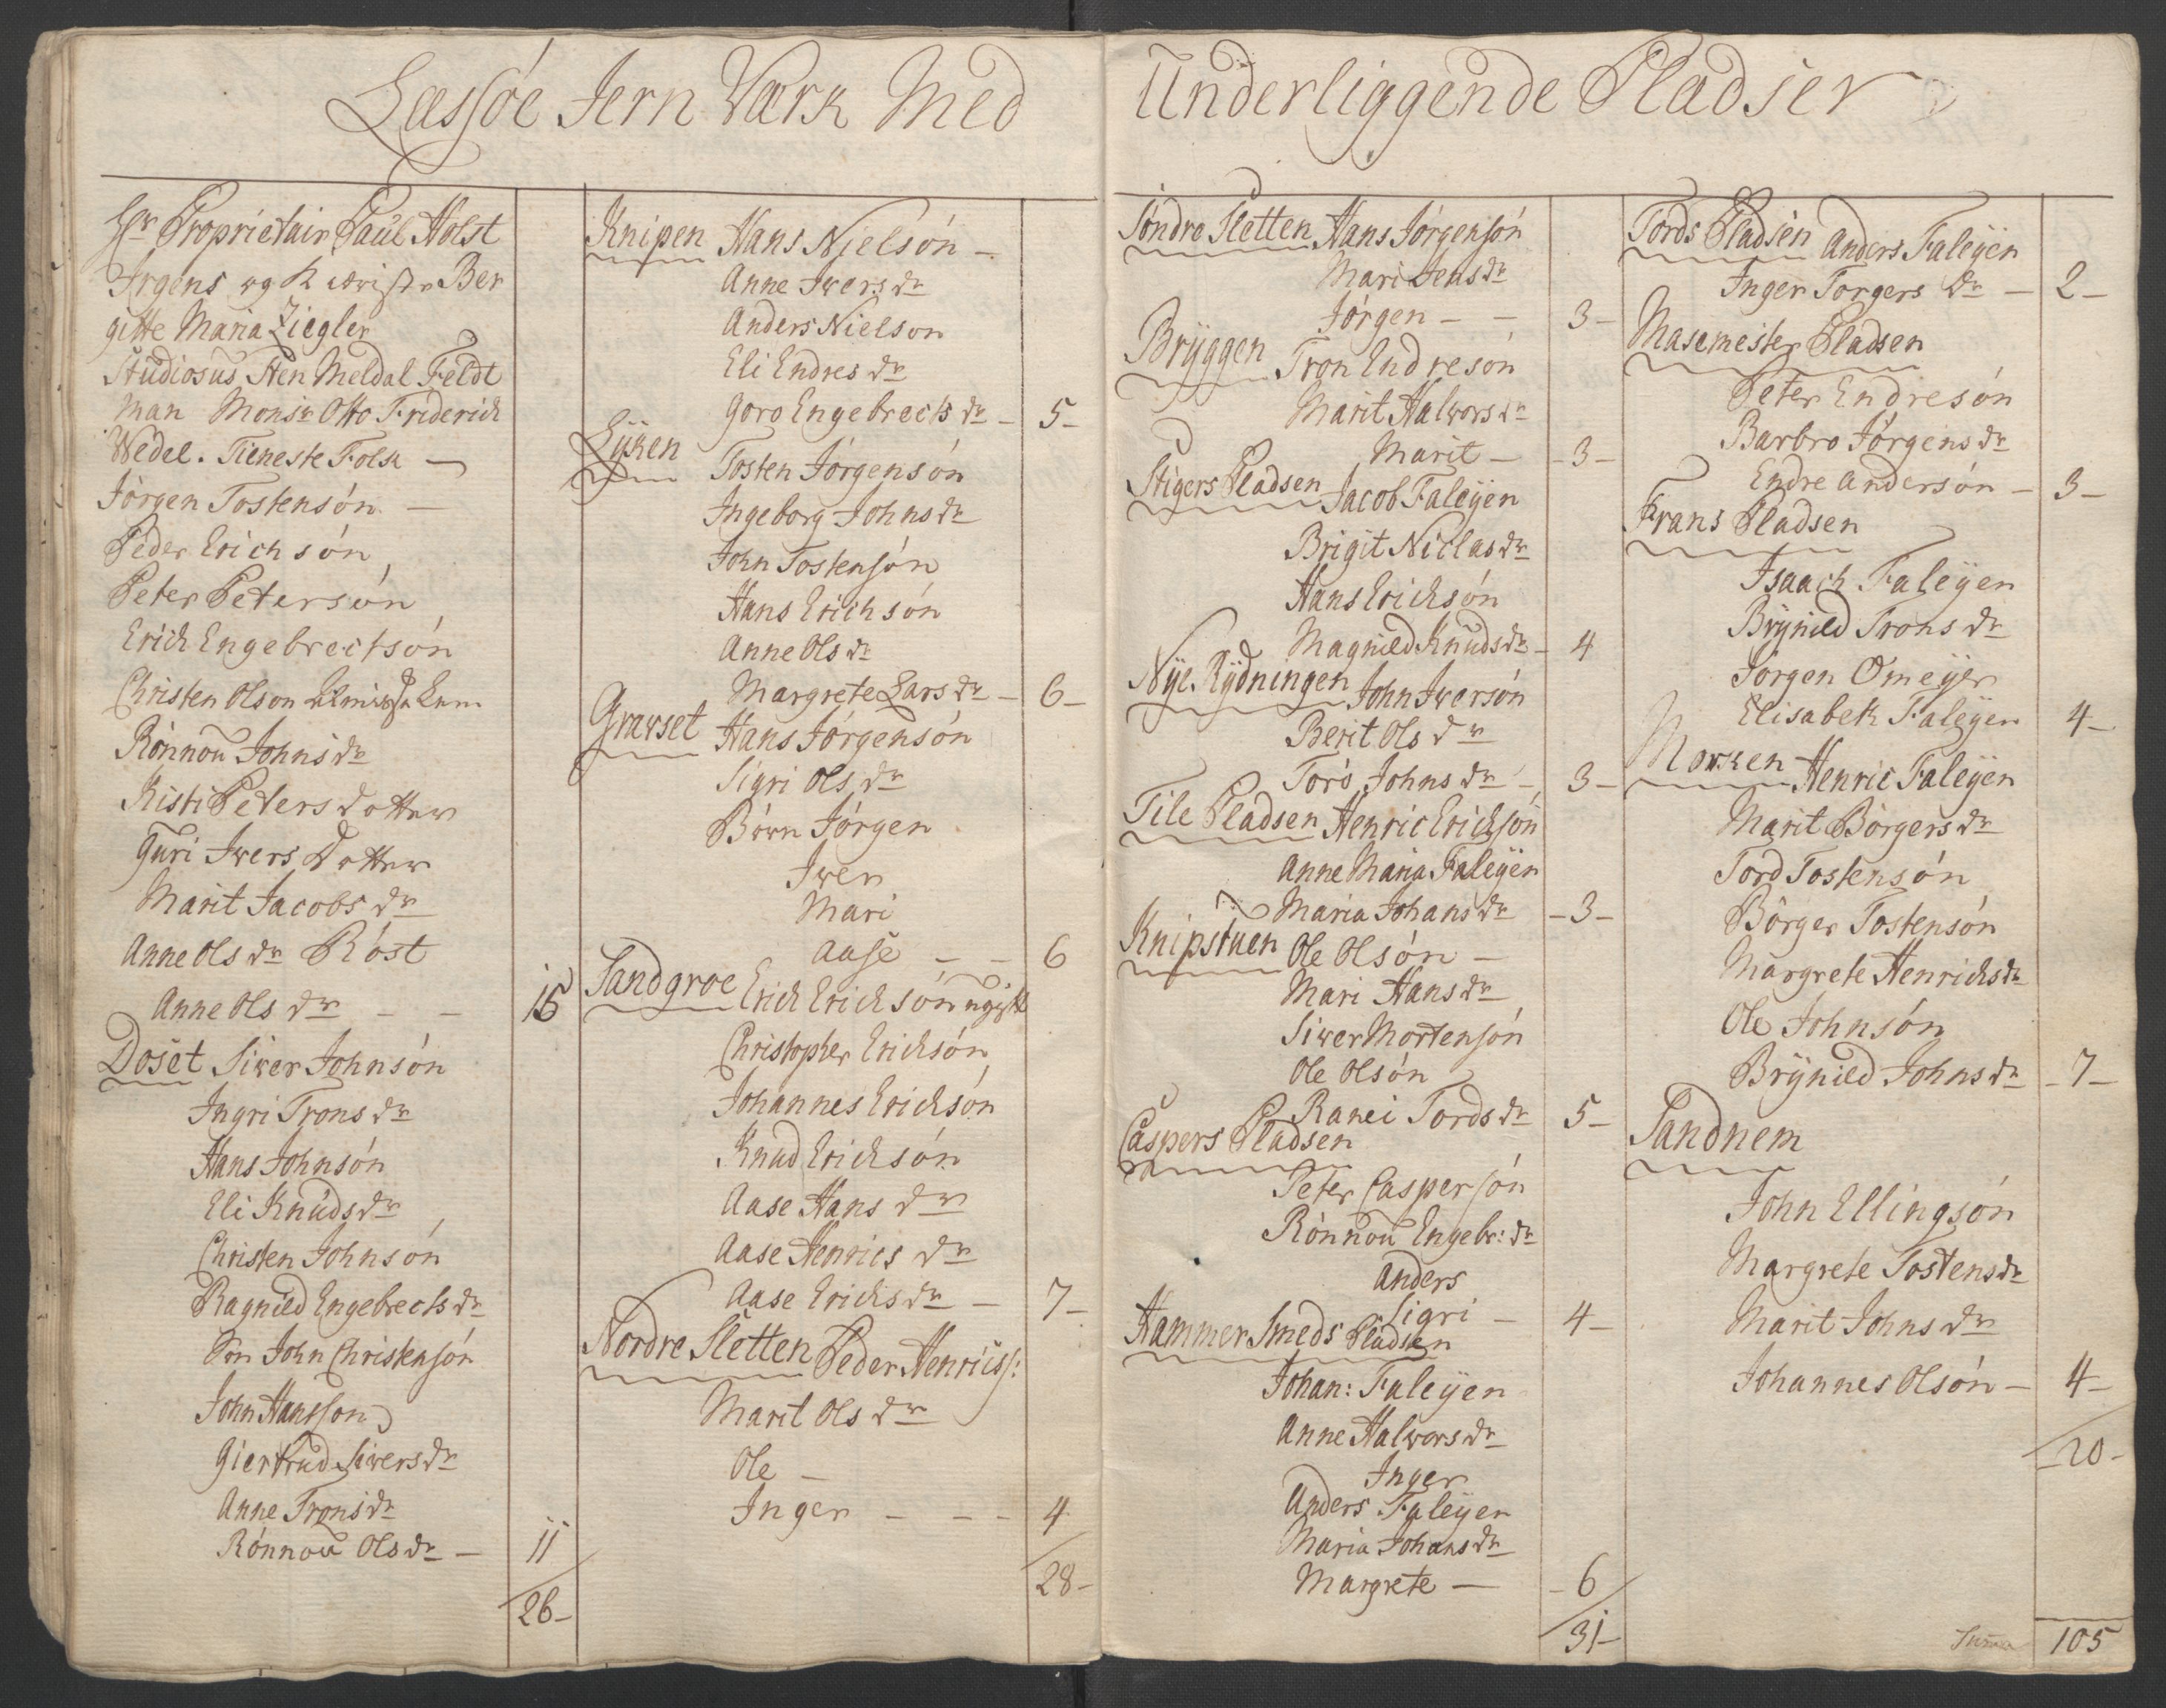 Læssøe Jern Værk Med Underliggende Pladser
Hr Proprietair Paul Holst
Irgens og Kiæriste Ber
gitte Maria Ziegler
Studiosus Sten Meldal Feldt
man Monsr Otto Friderich
Wedel. Tieneste Folk —
Jörgen Tostensön —
Peder Erichsön
Peter Petersön
Erich Engebrectsön
Christen Olson
Rönnou Johns dr
Kisti Peters dotter
Guri Iwers Dotter
Marit Jacobs dr
Anne Ols dr Röst
Anne Ols dr — — 15
Doset Siwer Johnsön
Ingri Trons dr
Hans Johnsön
Eli Knuds dr
Christen Johnsön
Ragnild Engebrects dr
Sön John Christensön
John Hansson
Giertrud Siwers dr
Anne Trons dr
Rönnou Ols dr — 11
26 —
Knipen Hans Nielsön —
Anne Iwers dr
Anders Nielson
Eli Endres dr
Goro Engebrects dr — 5 —
Lyken Tosten Jörgensön
Ingeborg Johns dr
John Tostensön
Hans Erichsön
Anne Ols dr
Margrete Lars dr — 6 —
Grawset Hans Jörgensön
Sigri Ols dr
Börn Jörgen
Iwer
Mari
Aase — — 6
Sandgroe Erich Erichsön ugift
Christopher Erichsön
Johannes Erichsön
Knud Erichsön
Aase Hans dr
Aase Henrics dr
Aase Erichs dr — 7 —
Nordre Sletten Peder Henricss:
Marit Ols dr
Ole —
Inger — — — 4
28 —
Söndre Sletten Hans Jörgensön
Mari Jens dr
Jörgen — — 3 —
Bryggen Tron Endresön
Marit Halwors dr
Marit — — 3 —
Stigers Pladsen Jacob Faleyen
Brigit Niclas dr
Hans Erichsön
Magnild Knuds dr — 4
Nye Rydningen John Iwersön
Berit Ols dr
Torö Johns dr — 3 —
Tile Pladsen Henric Erichsön
Anne Maria Faleyen
Maria Johans dr — 3 —
Knipstuen Ole Olsön —
Mari Hans dr
Siwer Mortensön
Ole Olsön
Ranei Tords dr 5 —
Caspers Pladsen
Peter Caspersön
Rönnou Engebr: dr
Anders
Sigri — 4 —
Hammer Smeds Pladsen
Johan: Faleyen
Anne Halwors dr
Inger
Anders Faleyen
Maria Johans dr
Margrete — — 6
31 —
Tords Pladsen Anders Faleyen
Inger Torgers dr — 2 —
Masemester Pladsen
Peter Endresön
Barbro Jörgens dr
Endre Andersön — 3 —
Frans Pladsen
Isaach Faleyen
Brynild Trons dr
Jörgen Omeyer
Elisabeth Faleyen 4 —
Morken Henric Faleyen
Marit Börgers dr
Tord Tostensön
Börger Tostensön
Margrete Henrichs dr
Ole Johnsön
Brynild Johns dr — 7 —
Sandnem
John Ellingsön
Margrete Tostens dr
Marit Johns dr
Johannes Olsön — 4 —
20 —
Summa 105